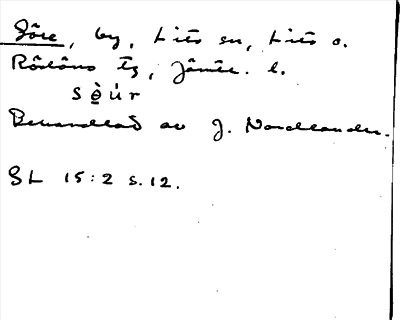 Söre, by, Lits sn, Lits o.
Rödöns tg, Jämtl. l.
s ė̱ u̇ r
Behandlad av J. Nordlander.
SL 15:2 s.12.